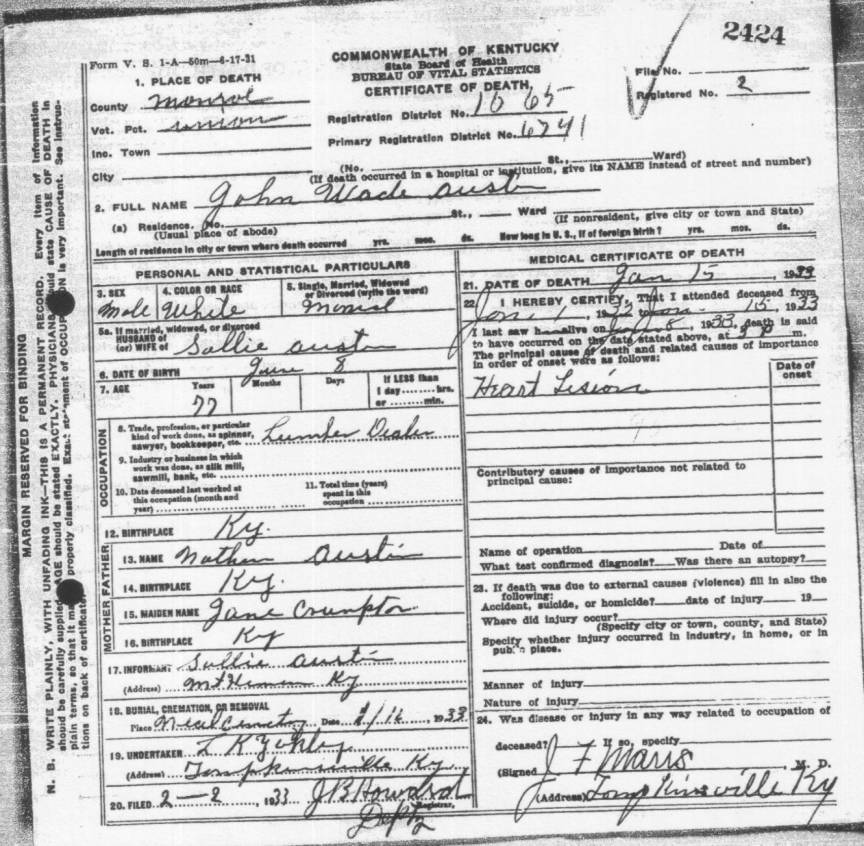 2424
Form V. S. 1-A—50m—6-17-31
COMMONWEALTH OF KENTUCKY
State Board of Health
BUREAU OF VITAL STATISTICS
CERTIFICATE OF DEATH
File No.
Registered No. 2
1. PLACE OF DEATH
County Monroe
Vot. Pct. Union
Inc. Town
City
Registration District No. 1065
Primary Registration District No. 6741
(No. St., Ward)
(If death occurred in a hospital or institution, give its NAME instead of street and number)
2. FULL NAME John Wade Austin
(a) Residence. No. St., Ward
(Usual place of abode) (If nonresident, give city or town and State)
Length of residence in city or town where death occurred yrs. mos. ds. How long in U. S., if of foreign birth? yrs. mos. ds.
PERSONAL AND STATISTICAL PARTICULARS
3. SEX 4. COLOR OR RACE 5. Single, Married, Widowed or Divorced (write the word)
Male White
5a. If married, widowed, or divorced
HUSBAND of
(or) WIFE of Sallie Austin
6. DATE OF BIRTH June 8
7. AGE Years Months Days If LESS than
1 day hrs.
or min.
77
OCCUPATION
8. Trade, profession, or particular
kind of work done, as spinner,
sawyer, bookkeeper, etc. Lumber Dealer
9. Industry or business in which
work was done, as silk mill,
sawmill, bank, etc.
10. Date deceased last worked at
this occupation (month and
year)
11. Total time (years)
spent in this
occupation
12. BIRTHPLACE Ky.
FATHER
13. NAME Nathan Austin
14. BIRTHPLACE Ky.
MOTHER
15. MAIDEN NAME Jane Crumpton
16. BIRTHPLACE Ky
17. INFORMANT Sallie Austin
(Address) Mt Hermon Ky
18. BURIAL, CREMATION, OR REMOVAL
Place Cemetry Date 1/16, 1933
19. UNDERTAKER
(Address) Tompkinsville Ky.
20. FILED 2—2, 1933 J B Howard
Registrar,
Depty
MEDICAL CERTIFICATE OF DEATH
21. DATE OF DEATH Jan 15, 1933
22. I HEREBY CERTIFY, That I attended deceased from
Jan 1, 1933 to Jan 15, 1933
I last saw h alive on Jan 8, 1933, death is said
to have occurred on the date stated above, at m.
The principal cause of death and related causes of importance
in order of onset were as follows:
Date of onset
Heart Lesion
Contributory causes of importance not related to
principal cause:
Name of operation Date of
What test confirmed diagnosis? Was there an autopsy?
23. If death was due to external causes (violence) fill in also the
following:
Accident, suicide, or homicide? date of injury 19
Where did injury occur?
(Specify city or town, county, and State)
Specify whether injury occurred in industry, in home, or in
public place.
Manner of injury
Nature of injury
24. Was disease or injury in any way related to occupation of
deceased? If so, specify
(Signed J F Marrs M. D.
(Address) Tompkinsville Ky
MARGIN RESERVED FOR BINDING
N. B. WRITE PLAINLY, WITH UNFADING INK—THIS IS A PERMANENT RECORD. Every item of information
should be carefully supplied. AGE should be stated EXACTLY. PHYSICIANS should state CAUSE OF DEATH in
plain terms, so that it may be properly classified. Exact statement of OCCUPATION is very important. See instruc-
tions on back of certificate.